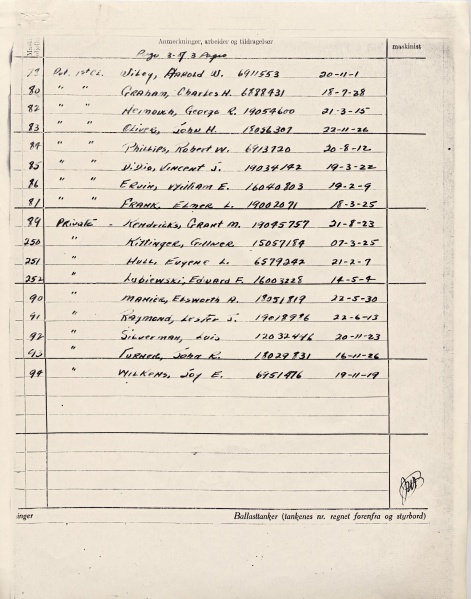 Anmerkninger, arbeider og tildragelser
maskinist
Page 3 of 3 Pages
79 Pvt. 1st Cl. Wiley, Harold W. 6911553 20-11-1
80 " " Graham, Charles H. 6888431 18-7-28
82 " " Heimbuch, George R. 19054600 21-3-15
83 " " Oliver, John H. 18056307 22-11-26
84 " " Phillips, Robert W. 6913720 20-8-12
85 " " DiDio, Vincent J. 19034142 19-3-22
86 " " Ervin, William E. 16040803 19-2-9
81 " " Frank, Elmer L. 19002071 18-3-25
89 Private - Kendricks, Grant M. 19045757 21-8-23
250 " Kitlinger, Gilmer 15057184 07-3-25
251 " Hull, Eugene L. 6579242 21-2-7
252 " Lubiewski, Edward F. 16003228 14-5-4
90 " Manier, Elsworth A. 18051819 22-5-30
91 " Raymond, Lester J. 19018986 22-6-13
92 " Silverman, Louis 12032446 20-11-23
93 " Turner, John K. 18029831 16-11-26
94 " Wilkens, Joy E. 6951476 19-11-19
inger
Ballasttanker (tankenes nr. regnet forenfra og styrbord)